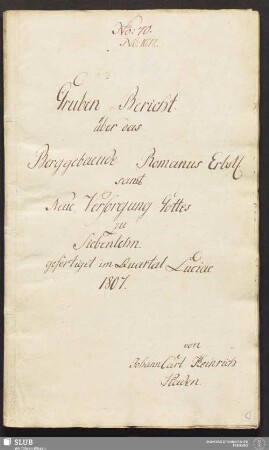 No: 70.
Gruben-Bericht
über das
Berggebaeude Romanus Erbst
samt
Neue Versorgung Gottes
zu
Siebenlehn
gefertiget im Quartal Luciae
1807.
von
Johann Carl Heinrich
SLUB